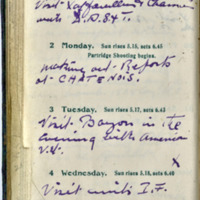 Visit Xaffévillers & Charmois
units A.S.&T.
2 Monday. Sun rises 5.15, sets 6.45
Partridge Shooting begins.
making out Reports
at CHATENOIS.
3 Tuesday. Sun rises 5.17, sets 6.43
Visit Bayon in the
evening with America
V.W.
X
4 Wednesday. Sun rises 5.18, sets 6.40
Visit units I.F.